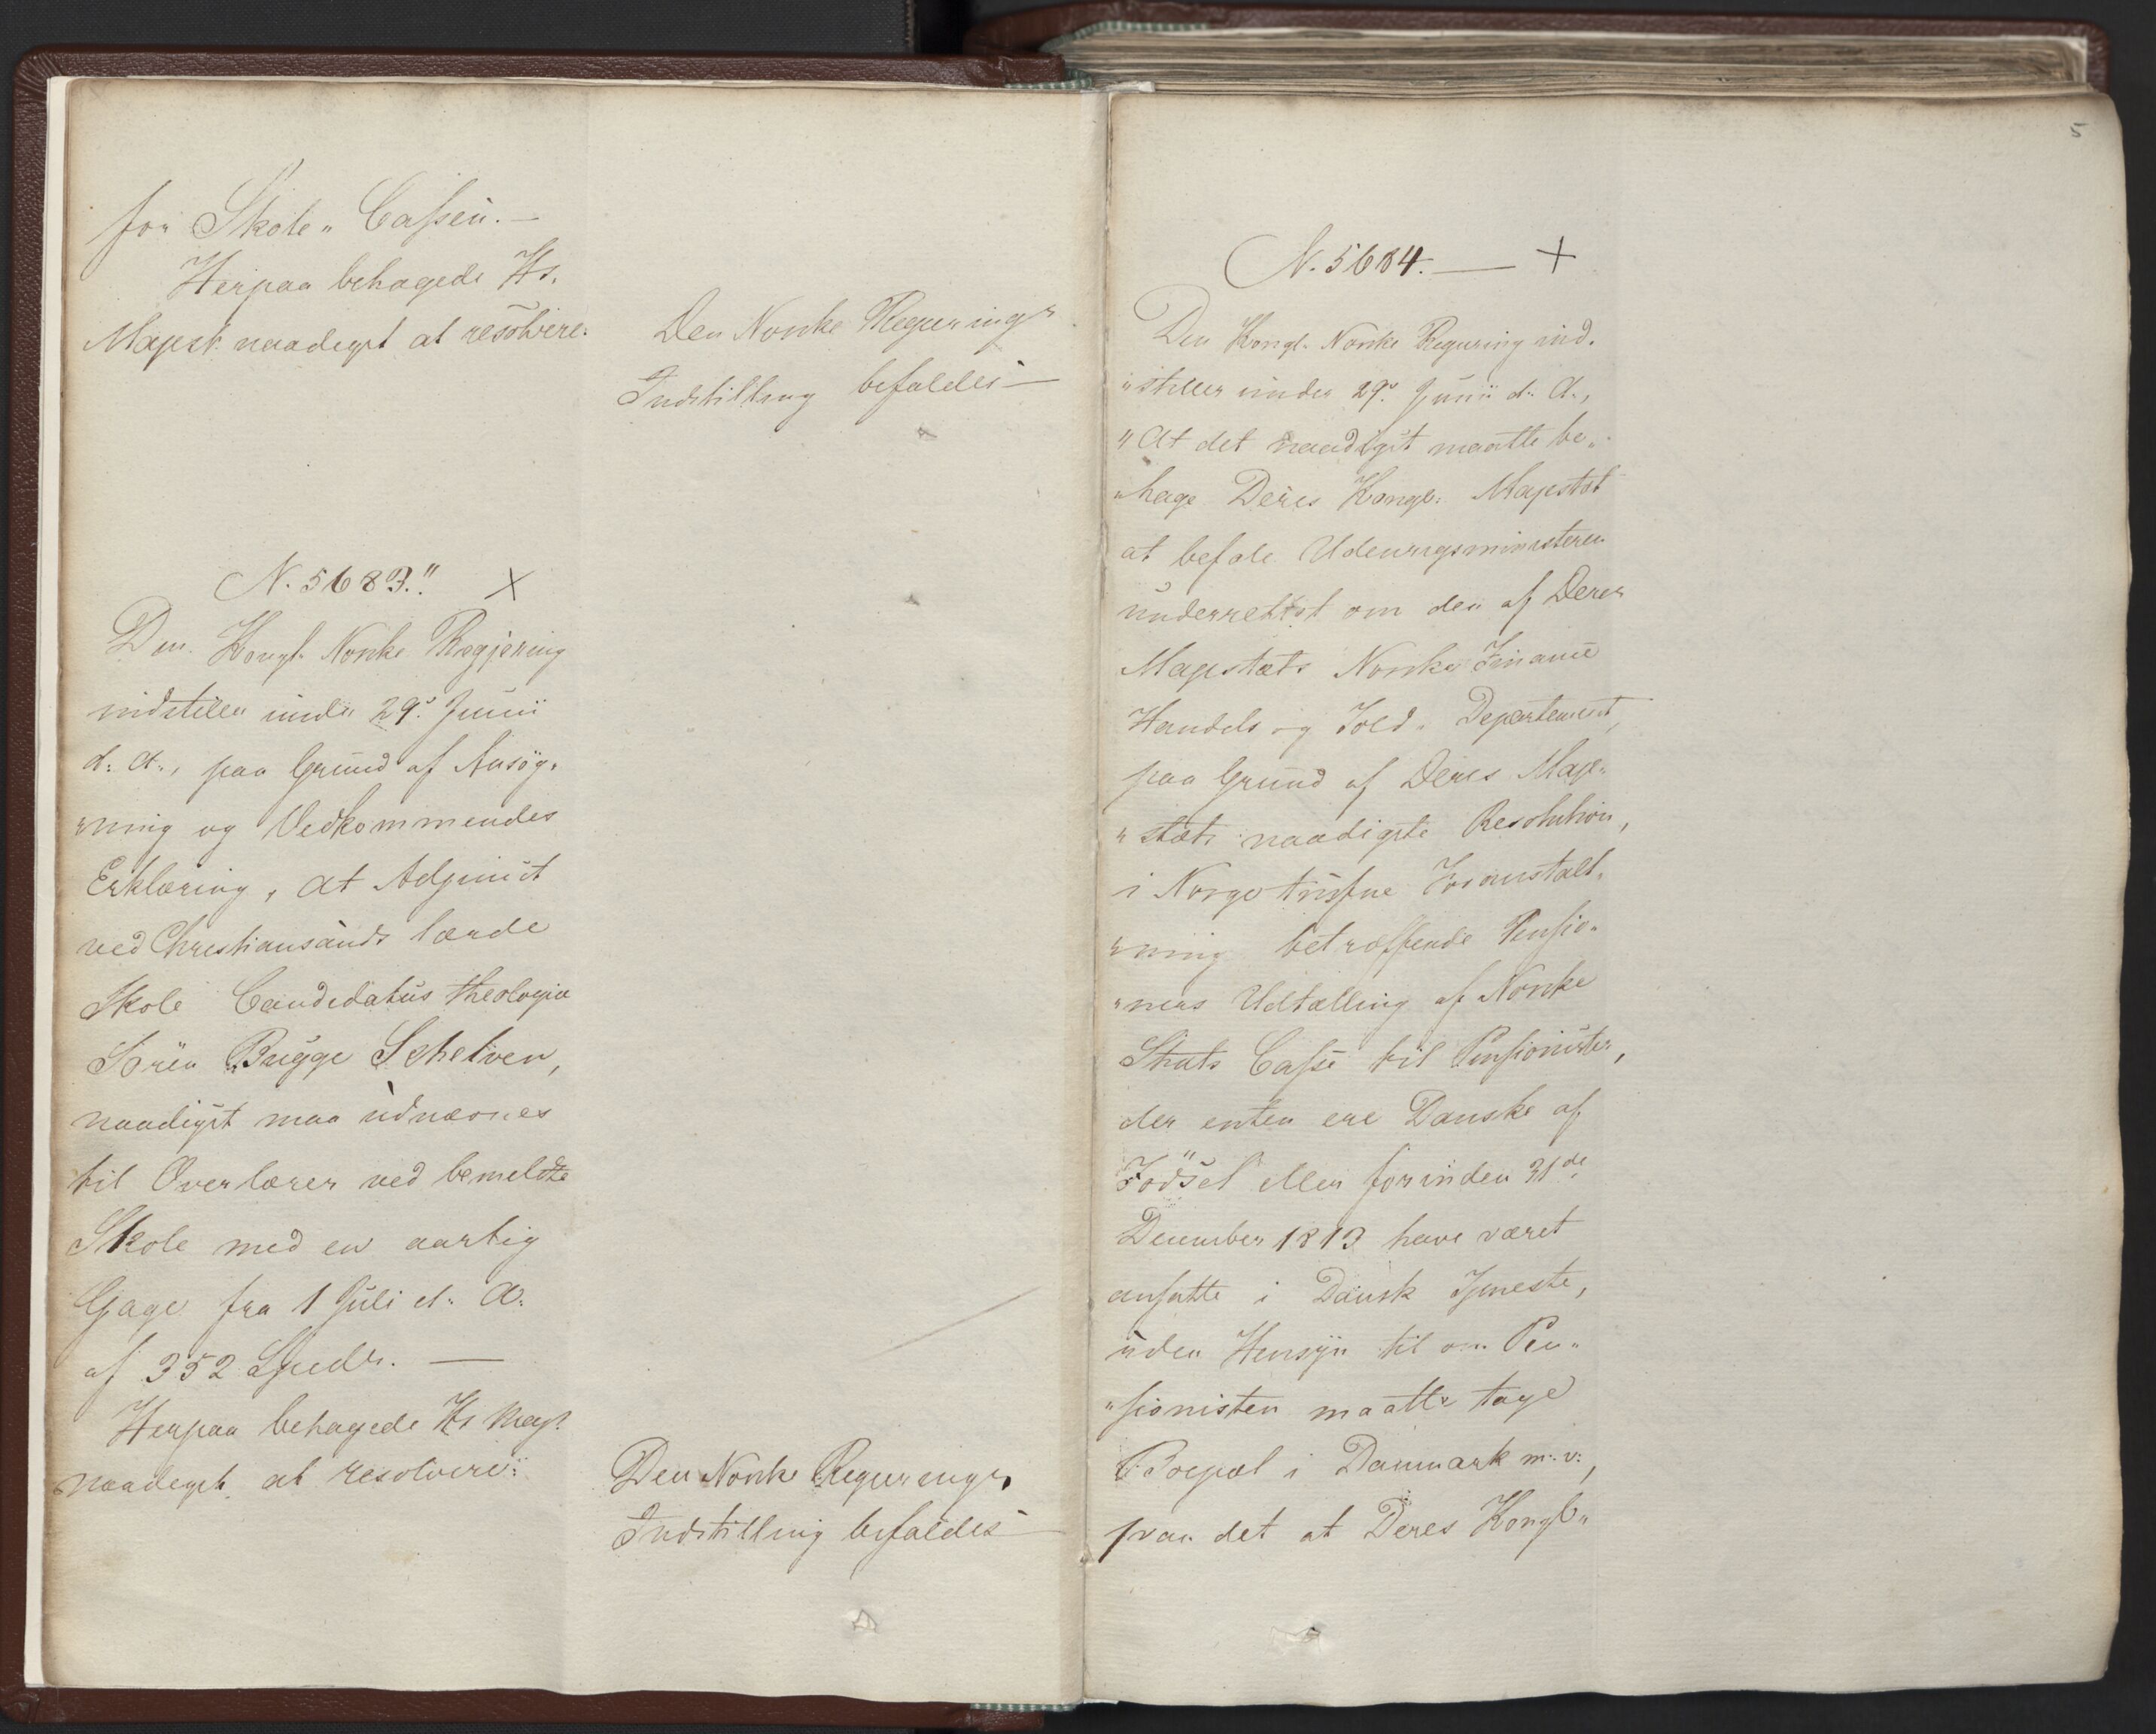 for Skole„ Cassen. —
Herpaa behagede Hs.
Majest. naadigst at resolvere:
Den Norske Regjerings
Indstilling befaldes —
N. 5683." X
Den Kongl. Norske Regjering
indstiller under 29de Junii
d: A:, paa Grund af Ansøg„
„ning og Vedkommendes
Erklæring, at Adjunct
ved Christiansands lærde
Skole Candidatus theologiæ
Sören Bugge Schelven,
naadigst maa udnævnes
til Overlærer ved bemeldte
Skole med en aarlig
Gage fra 1 Juli d: A:
af 352 Spedr. —
Herpaa behagede Hs Majst
naadigst at resolvere:
Den Norske Regjerings
Indstilling befaldes —
5
N. 5684. — X
Den Kongl. Norske Regjering ind„
„stiller under 29de Junii d: A:,
„At det naadigst maatte be„
„hage Deres Kongl: Majestæt
at befale Udenrigsministeren
underrettet om den af Deres
Majestæts Norske Finance
Handels og Told„ Departement,
paa Grund af Deres Maje„
„stæts naadigste Resolution,
i Norge trufne Foranstalt„
„ning betræffende Pensio„
„ners Udtælling af Norske
Stats Casse til Pensionister,
der enten ere Danske af
Födsel eller forinden 31de
December 1813 have været
ansatte i Dansk Tjeneste,
uden Hensyn til om Pen„
„sionisten maatte tage
Boepæl i Danmark m: v:,
paa det at Deres Kongl„